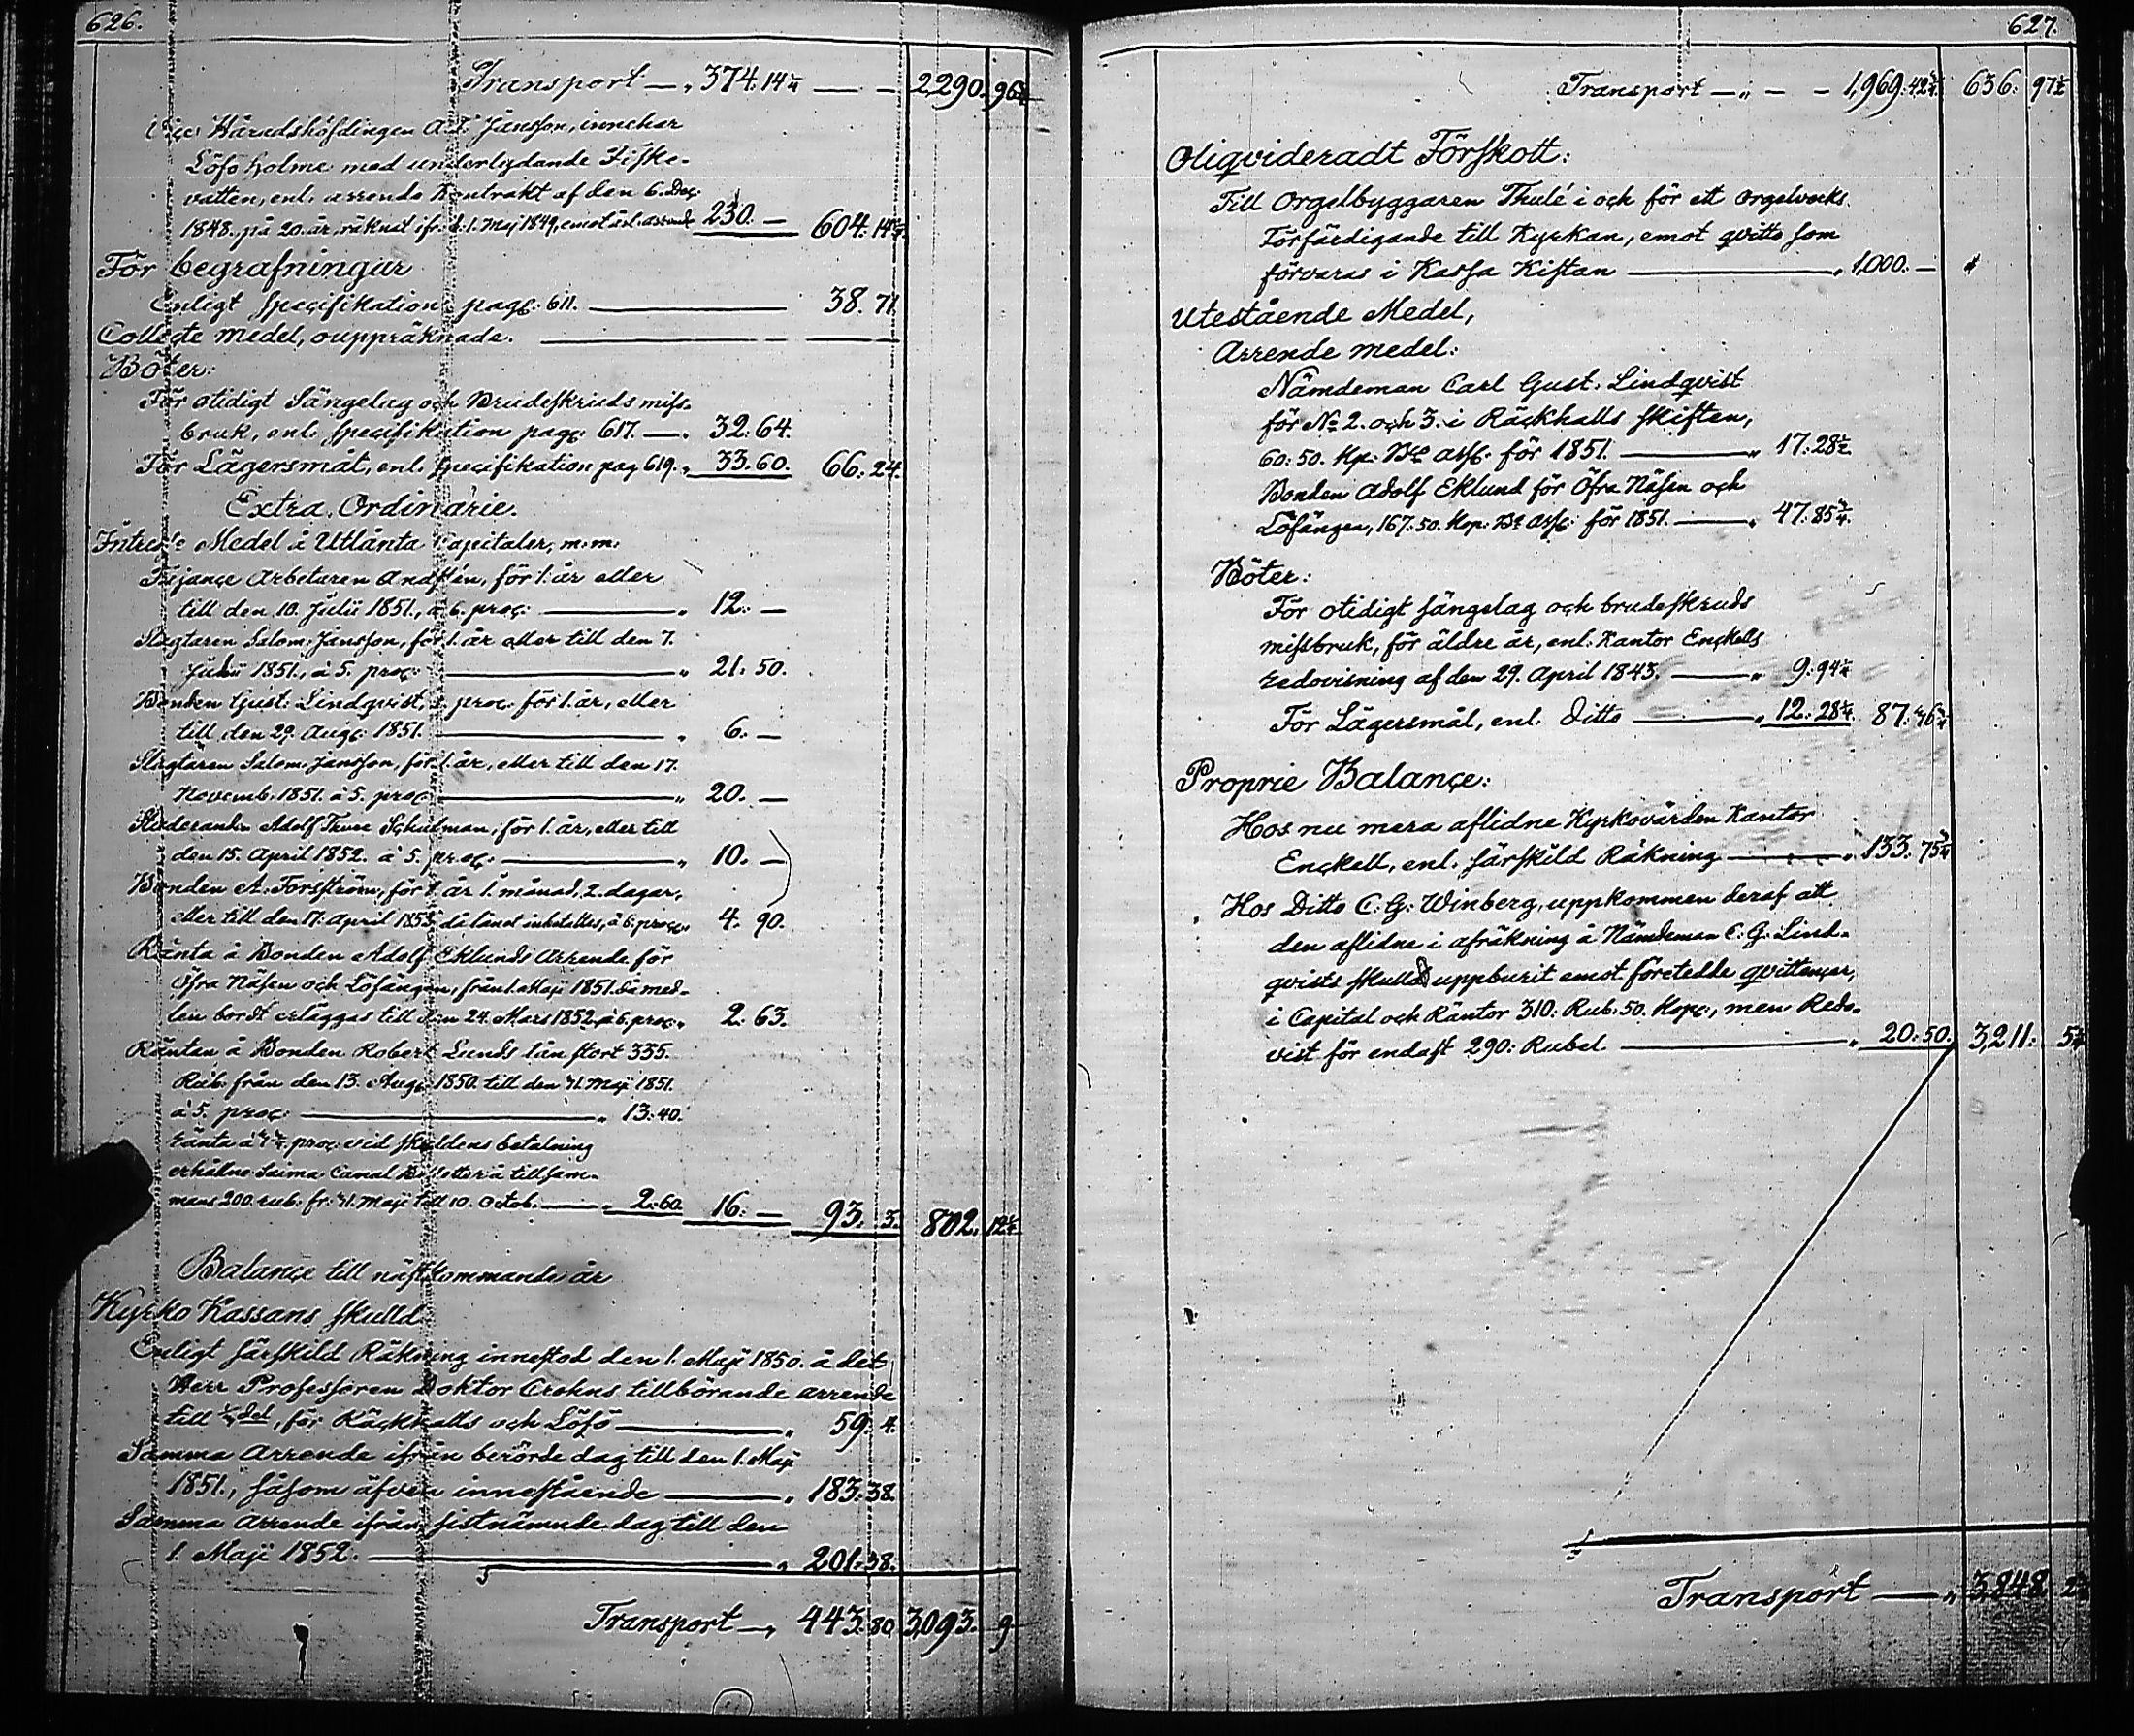 626.
Transport — „ 374. 14 — — 2,290. 96
Vice Häradshöfdingen A. F. Jansson, innehar
Löfö holme med underlydande Fiske-
vatten, enl. arrende Kontrakt af den 6. Dec.
1848. på 20. år, räknat ifr. d. 1. Maj 1849, emot årl. arrende 230. — 604. 14
För begrafningar
Enligt Specifikation pag: 611. — 38. 71.
Collecte medel, ouppräknade. — — —
Böter:
För otidigt Sängelag och Brudeskruds miss-
bruk, enl. Specifikation pag: 617. — „ 32. 64.
För Lägersmål, enl. Specifikation pag 619. „ 33. 60. 66. 24.
Extra. Ordinarie.
Intresse Medel å Utlånta Capitaler, m: m:
Arbetaren för 1. år eller
till den 10. Julii 1851., à 6. proc: — „ 12. —
Slagtaren Salom: Jansson, för 1. år eller till den 7.
1851., à 5. proc: — „ 21. 50.
Bonden Gust: Lindqvist, proc: för 1. år, eller
till den 29. Aug: 1851. — „ 6. —
Slagtaren Salom. Jansson, för 1. år, eller till den 17.
Novemb. 1851. à 5. proc — „ 20. —
Studeranden Adolf Thure Schulman, för 1. år, eller till
den 15. April 1852. à 5. proc: — „ 10. —
Bonden A. Forsström, för 1. år 1. månad, 2. dagar,
eller till den 17. April då lånet inbetaltes, à 6. proc: „ 4. 90.
Ränta å Bonden Adolf Eklunds Arrende för
Öfra Näsen och Löfängen, från 1. Maji 1851. då med-
len bordt erläggas till den 24. Mars 1852, à 6. proc. „ 2. 63.
Räntan å Bonden Robert Lunds lån stort 335.
Rub. från den 13. Aug: 1850. till den 31. Maji 1851.
à 5. proc: — „ 13. 40.
Ränta à proc vid skuldens betalning
erhållne Saima Canal Billetter à tillsam-
mans 200. rub. fr. 31. Maji till 10. Octob. — „ 2. 60. 16. — 93. 3. 802. 12
Balance till nästkommande år
Kyrko Kassans skulld
Enligt särskild Räkning innestod den 1. Maji 1850. å det
Herr Professoren Doktor Crohns tillhörande arrende
till del, för Räckhalls och Löfö — „ 59. 4.
Samma Arrende ifrån berörde dag till den 1. Maji
1851., såsom äfven innestående — „ 183. 38.
Samma Arrende ifrån sistnämnde dag till den
1. Maji 1852. — „ 201. 38.
Transport — „ 443. 80 3,093. 9
627.
Transport — „ — — 1,969. 42 636. 97
Oliqvideradt Förskott:
Till Orgelbyggaren Thulé i och för ett Orgelverks
Förfärdigande till Kyrkan, emot qvitto som
förvaras i Kassa Kistan — „ 1,000. —
Utestående Medel,
Arrende medel:
Nämdeman Carl Gust. Lindqvist
för No 2. och 3. i Räckhalls skiften,
60: 50. Kp: Bco för 1851. — „ 17. 28
Bonden Adolf Eklund för Öfra Näsen och
Löfängen, 167: 50. Kop: för 1851. — „ 47. 85
Böter:
För otidigt sängelag och brudeskruds
missbruk, för äldre år, enl. Kantor Enckells
redovisning af den 29. April 1843. — „ 9. 94
För Lägersmål, enl. Ditto — „ 12. 28 87. 46
Proprie Balance:
Hos nu mera aflidne Kyrkovärden Kantor
Enckell, enl. särskild Räkning — „ 153. 75
Hos Ditto C: G: Winberg, uppkommen deraf att
den aflidne i afräkning å Nämdeman C: G: Lind-
qvists skulld uppburit emot företedde qvittencer,
i Capital och Räntor 310: Rub: 50. Kop:, men Redo-
vist för endast 290: Rubel. — „ 20: 50. 3,211: 5
Transport — „ 3,848. 2